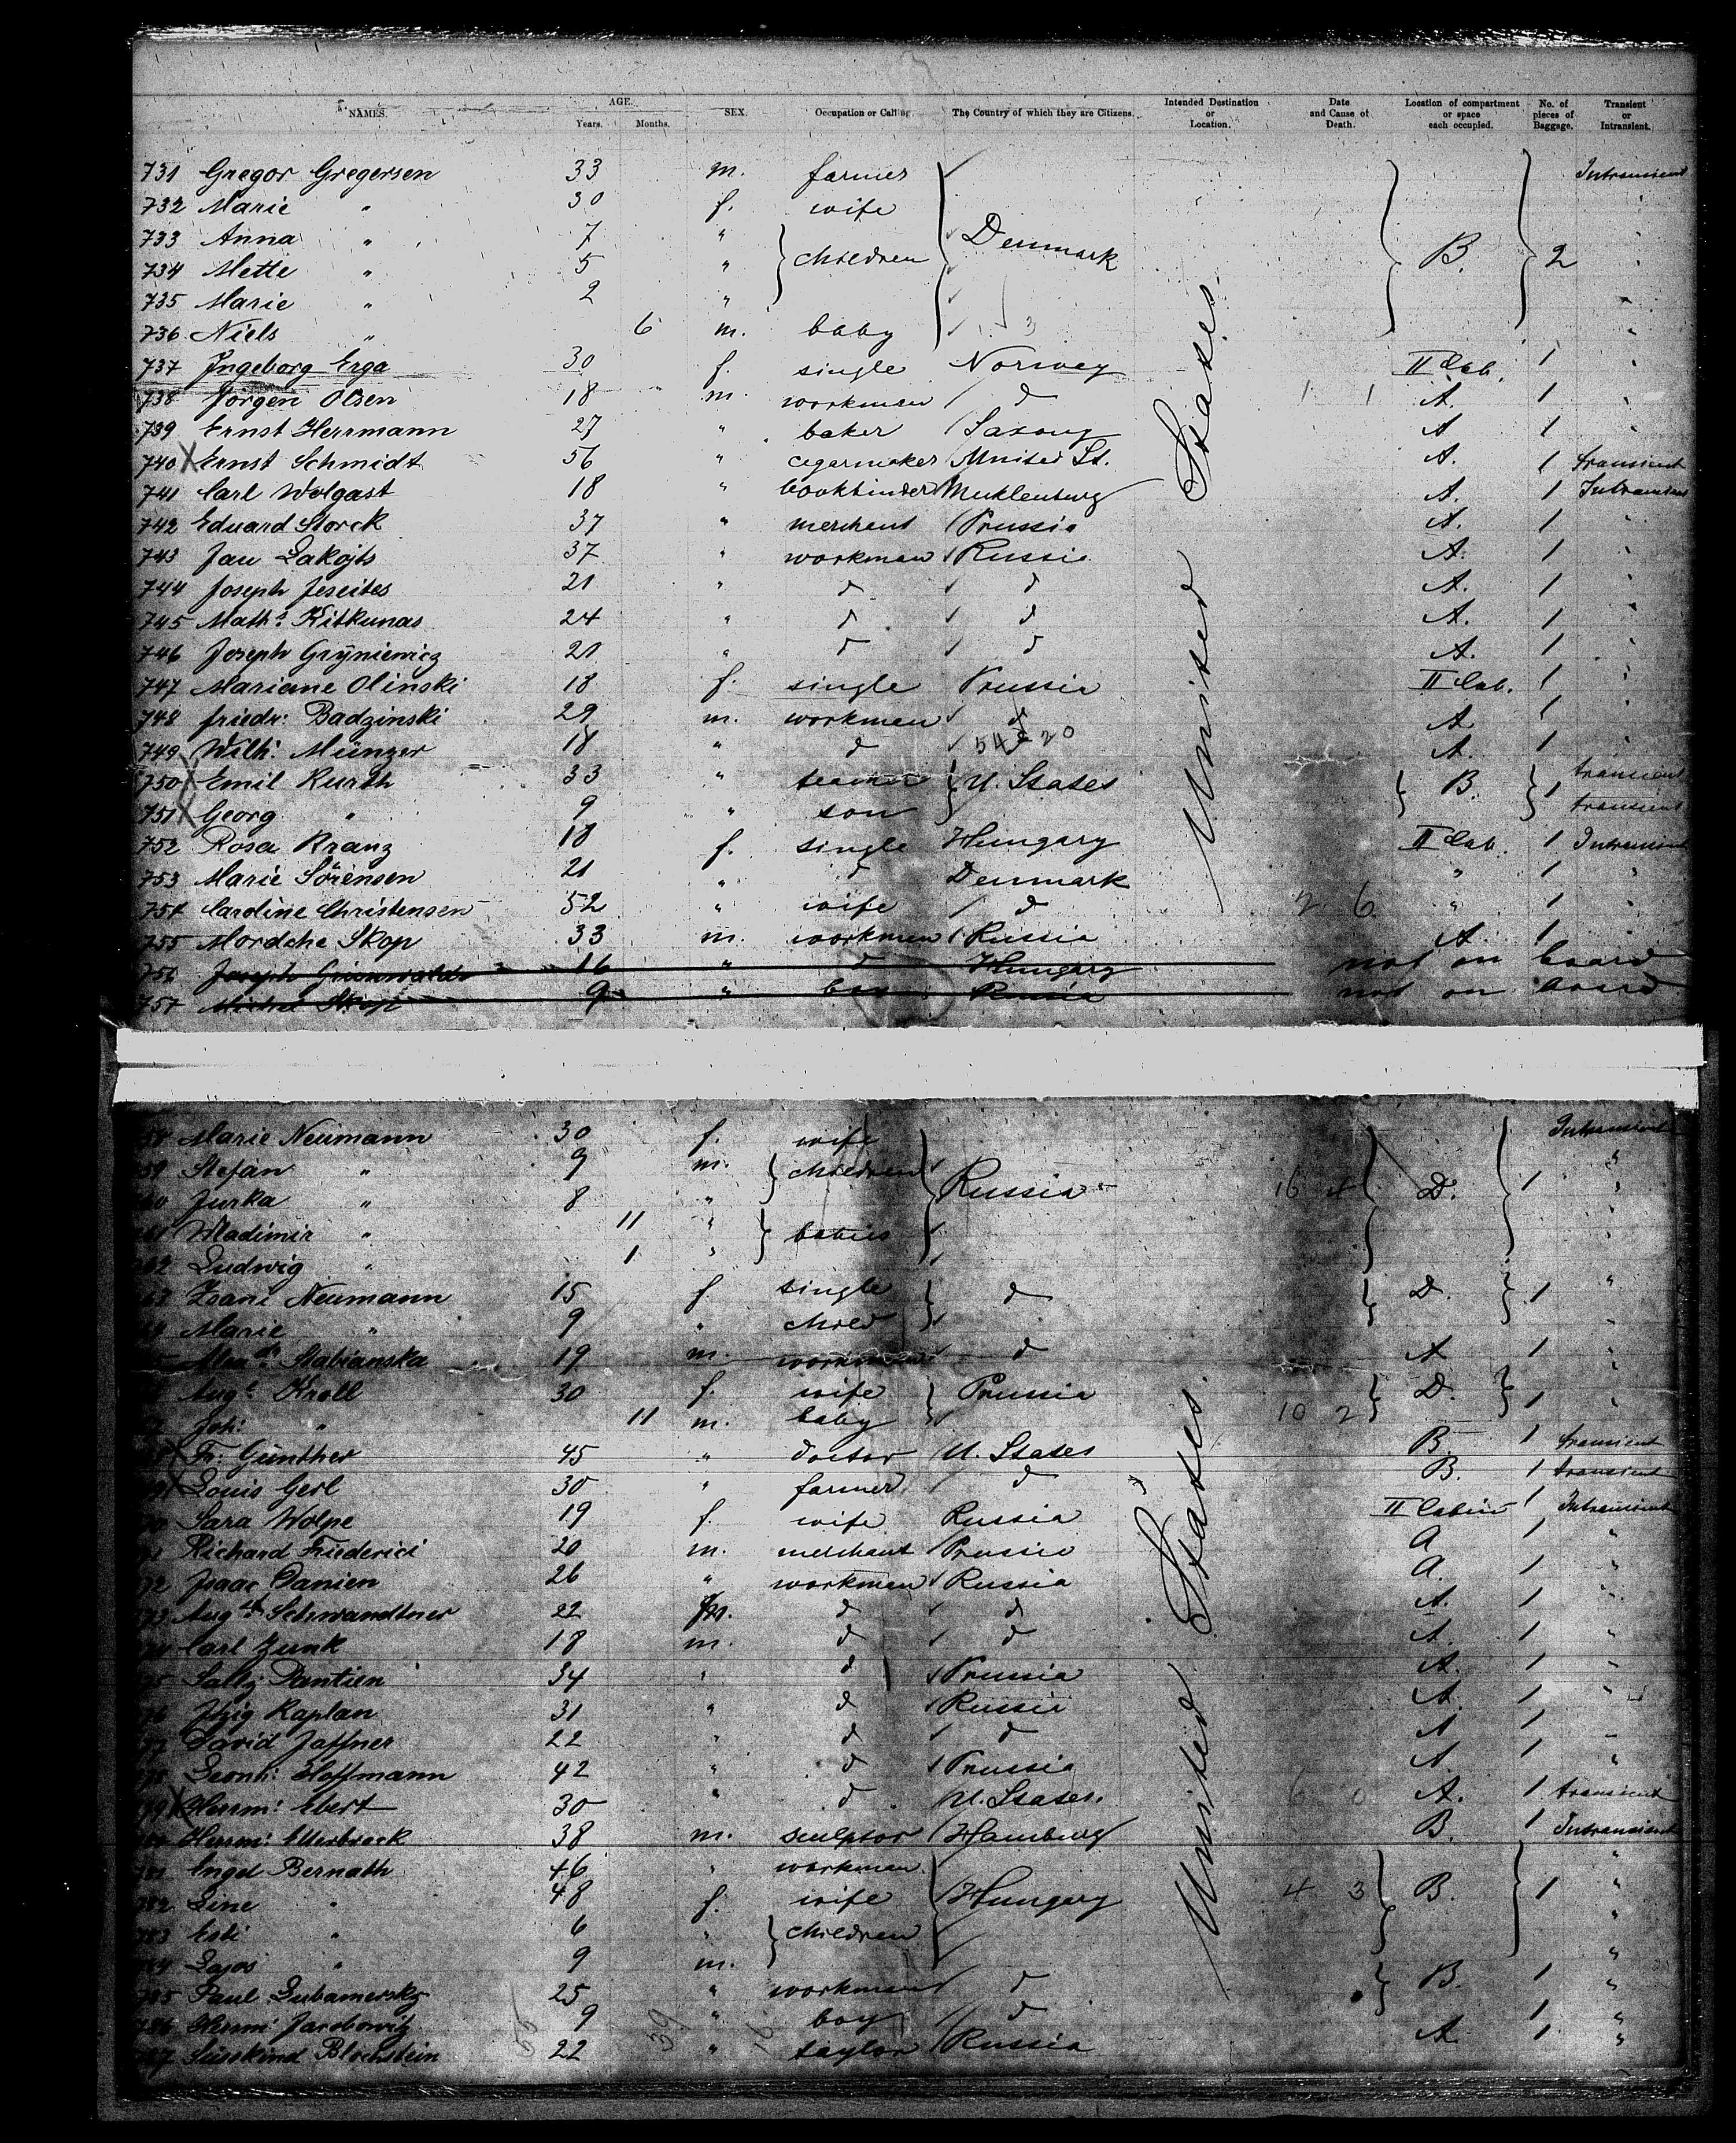 NAMES. AGE. Years. Months. SEX. Occupation or Calling. The Country of which they are Citizens. Intended Destination or Location. Date and Cause of Death. Location of compartment or space each occupied. No. of pieces of Baggage. Transient or Intransient.
731 Gregor Gregersen 33 m. farmer Intransient
732 Marie " 30 f. wife "
733 Anna " 7 " children Denmark B. 2 "
734 Mette " 5 " "
735 Marie " 2 " "
736 Niels " 6 m. baby "
737 Ingeborg Erga 30 f. single Norwey II Cab. 1 "
738 Jörgen Olsen 18 m. workman d A. 1 "
739 Ernst Herrmann 27 " baker Saxony A 1 "
740 X Ernst Schmidt 56 " cigarmaker United St. A. 1 transient
741 Carl Wolgast 18 " bookbinder Mecklenburg A. 1 Intransient
742 Eduard Storck 37 " merchant Prussia A. 1 "
743 Jan Lakojts 37 " workman Russia A. 1 "
744 Joseph Jeseites 21 " d d A. 1 "
745 Maths Kitkunas 24 " d d A. 1 "
746 Joseph Gryniewicz 21 " d d A. 1 "
747 Mariane Olinski 18 f. single Prussia II Cab. 1 "
748 Friedr: Badzinski 29 m. workman d A. 1 "
749 Wilh: Münzer 18 " d d A. 1 "
750 X Emil Kurth 33 " U. States B. 1 transient
751 X Georg " 9 " son transient
752 Rosa Kranz 18 f. single Hungary II Cab. 1 Intransient
753 Marie Sörensen 21 " d Denmark " 1 "
754 Caroline Christensen 52 " wife d 2 6 " 1 "
755 Mordche Skop 33 m. workman Russia A. 1 "
756 Joseph Grünwalder 16 " d Hungary not on board
757 Michel Skop 9 " boy Russia not on board
United States.
758 Marie Neumann 30 f. wife Intransient
759 Stefan " 9 m. children Russia 16 4 D. 1 "
760 Jurka " 8 " "
761 Wladimir " 11 " babies "
762 Ludwig " 1 "
763 Neumann 15 f. single d D. 1 "
764 Marie " 9 " child
Stabianska 19 m. workman d A 1 "
Augte Kroll 30 f. wife Prussia D. 1 "
Joh: " 11 m. baby 10 2
Fr. Günther 45 " doctor U. States B. 1 transient
Louis Gerl 30 " farmer d B. 1 transient
Sara Wolpe 19 f. wife Russia II Cabin 1 Intransient
Richard Friederici 20 m. merchant Prussia A 1 "
772 Isaac Danien 26 " workman Russia A. 1 "
773 Augst Schwandtner 22 m. d d A. 1 "
Carl Zunk 18 m. d d A. 1 "
775 Sally Dantien 34 " d Prussia A. 1 "
776 Itzig Kaplan 31 " d Russia A. 1 "
777 David Jaffner 22 " d d A 1 "
778 Leonh: Hoffmann 42 " d Prussia A. 1 "
779 X Herrm: Ebert 30 " d U. States. 6 0 A. 1 transient
780 Herrm: Ellerbrock 38 m. sculptor Hamburg B. 1 Intransient
781 Engel Bernath 46 " workman "
782 Line " 48 f. wife Hungary 4 3 B. 1 "
783 " 6 " children "
784 Lajos " 9 m. "
785 Paul Lubamersky 25 " workman d B. 1 "
786 Herm: Jacobowitz 9 " boy d 1 "
787 Süsskind Blochstein 22 " taylor Russia A. 1 "
United States.